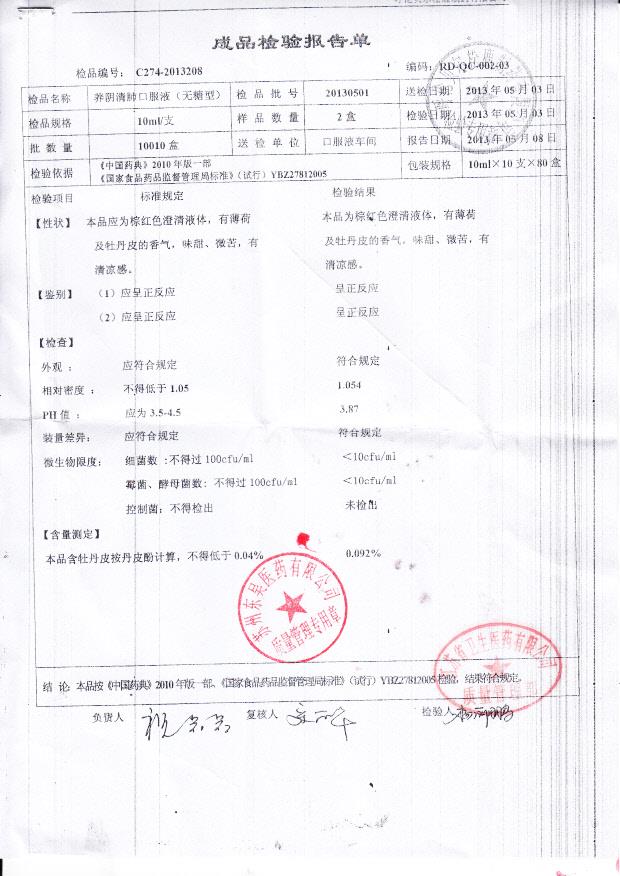 成品检验报告单
检品编号： C274-2013208 编码：RD-QC-002-03
检品名称 养阴清肺口服液（无糖型） 检品批号 20130501 送检日期 2013年05月03日
检品规格 10ml/支 样品数量 2盒 检验日期 2013年05月03日
批数量 10010盒 送检单位 口服液车间 报告日期 2013年05月08日
检验依据 《中国药典》2010年版一部 包装规格 10ml×10支×80盒
《国家食品药品监督管理局标准》（试行）YBZ27812005
检验项目 标准规定 检验结果
【性状】 本品应为棕红色澄清液体，有薄荷 本品为棕红色澄清液体，有薄荷
及牡丹皮的香气，味甜、微苦，有 及牡丹皮的香气，味甜、微苦，有
清凉感。 清凉感。
【鉴别】 （1）应呈正反应 呈正反应
（2）应呈正反应 呈正反应
【检查】
外观： 应符合规定 符合规定
相对密度： 不得低于1.05 1.054
PH值： 应为3.5-4.5 3.87
装量差异： 应符合规定 符合规定
微生物限度： 细菌数：不得过100cfu/ml <10cfu/ml
霉菌、酵母菌数：不得过100cfu/ml <10cfu/ml
控制菌：不得检出 未检出
【含量测定】
本品含牡丹皮按丹皮酚计算，不得低于0.04% 0.092%
苏州东昊医药有限公司
质量管理专用章
卫生医药有限公司
质量管理
结论：本品按《中国药典》2010年版一部、《国家食品药品监督管理局标准》（试行）YBZ27812005检验，结果符合规定。
负责人 复核人 检验人